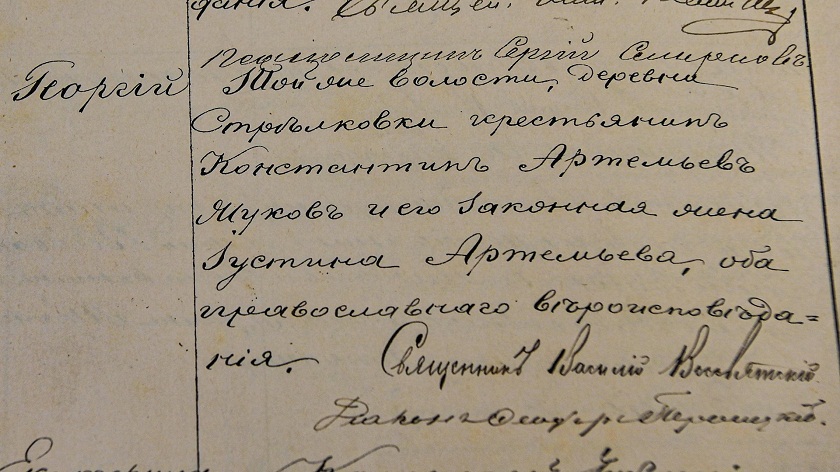 данія.
Псаломщикъ Сергій Смирновъ.
Георгій
Той же волости, деревни
Стрѣлковки крестьянинъ
Константинъ Артемьевъ
Жуковъ и его законная жена
Іустина Артемьева, оба
православнаго вѣроисповѣда=
нія. Священникъ Василій Всесвятскій.
Діаконъ